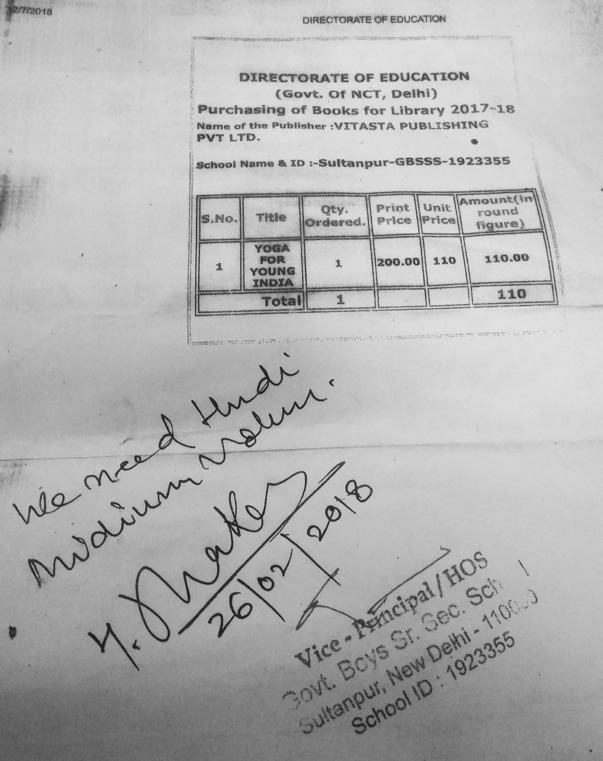 2/7/2018
DIRECTORATE OF EDUCATION
DIRECTORATE OF EDUCATION
(Govt. Of NCT, Delhi)
Purchasing of Books for Library 2017-18
Name of the Publisher :VITASTA PUBLISHING
PVT LTD.
School Name & ID :-Sultanpur-GBSSS-1923355
S.No. Title Qty. Ordered. Print Price Unit Price Amount(in round figure)
1 YOGA FOR YOUNG INDIA 1 200.00 110 110.00
Total 1 110
We need Hindi
Midium Volum.
26/02/2018
Vice - Principal / HOS
Govt. Boys Sr. Sec. Sch
Sultanpur, New Delhi -
School ID : 1923355